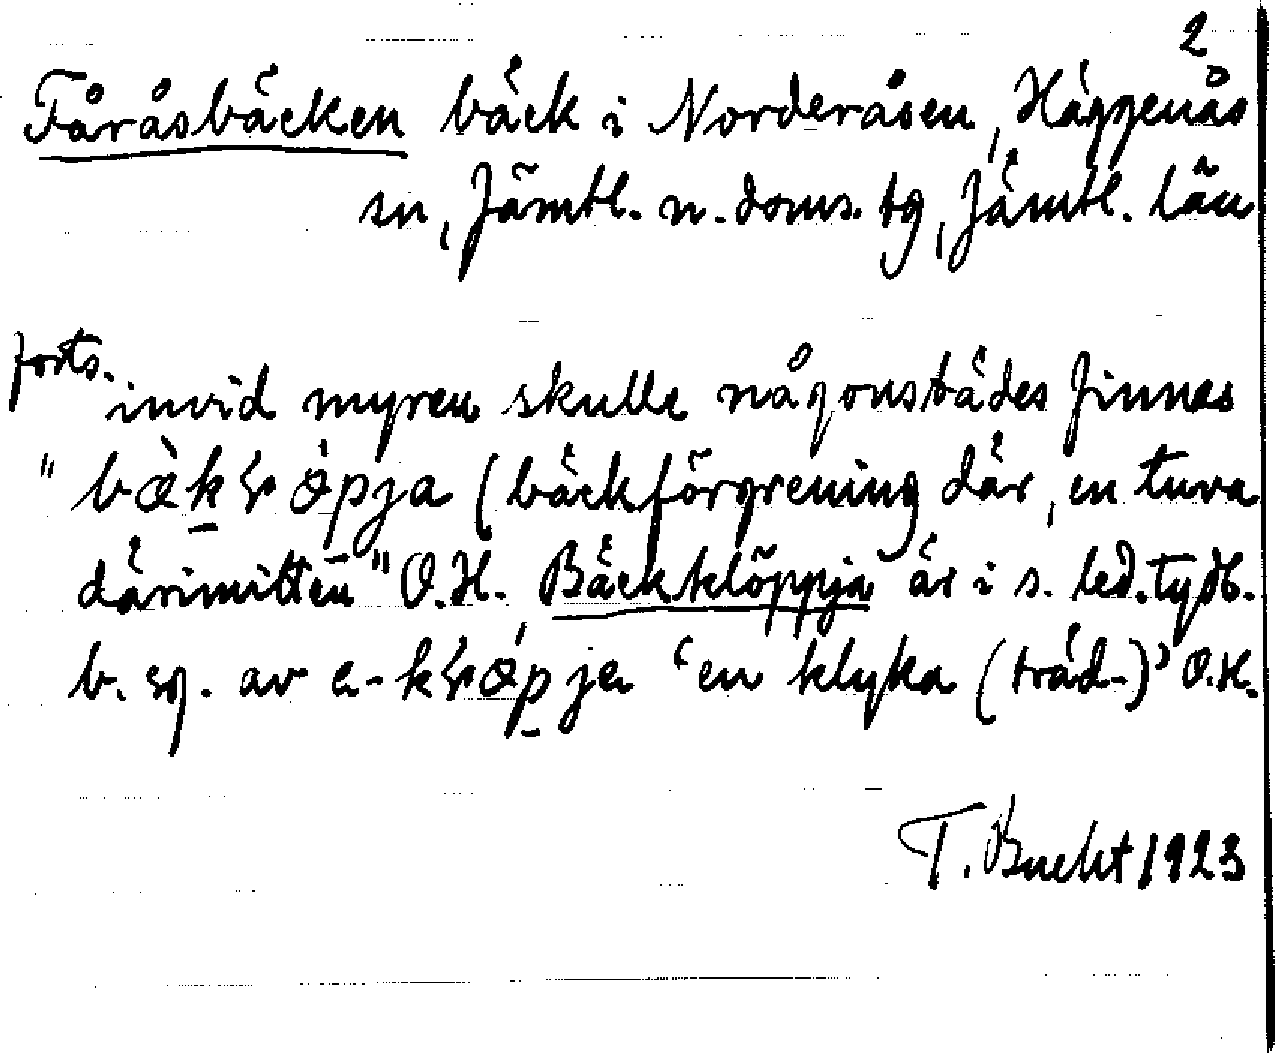 2
Fåråsbäcken bäck i Norderåsen, Häggenås
sn, Jämtl. n. doms. tg, Jämtl. län
forts. invid myren skulle någonstädes finnes
"bæ̀k̠ɽápja (bäckförgrening där, en tuva
därimitten" O.H. Bäckklöppja är i s. led. tydl.
b. sg. av a-kɽæ̀p̠ja 'en klyka (träd-)' O.H.
T. Bucht 1923